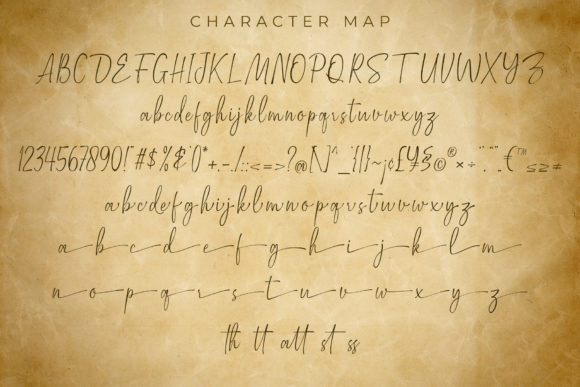 CHARACTER MAP
ABCDEFGHIJKLMNOPQRSTUVWXYZ
abcdefghijklmnopqrstuvwxyz
1234567890!"#$%&'()*+,-./:;<=>?@[\]^_{|}~¡¢£¥§©®×÷“”‘’„‚€™≤≥≠
abcdefghijklmnopqrstuvwxyz
a b c d e f g h i j k l m
n o p q r s t u v w x y z
th tt att st ss